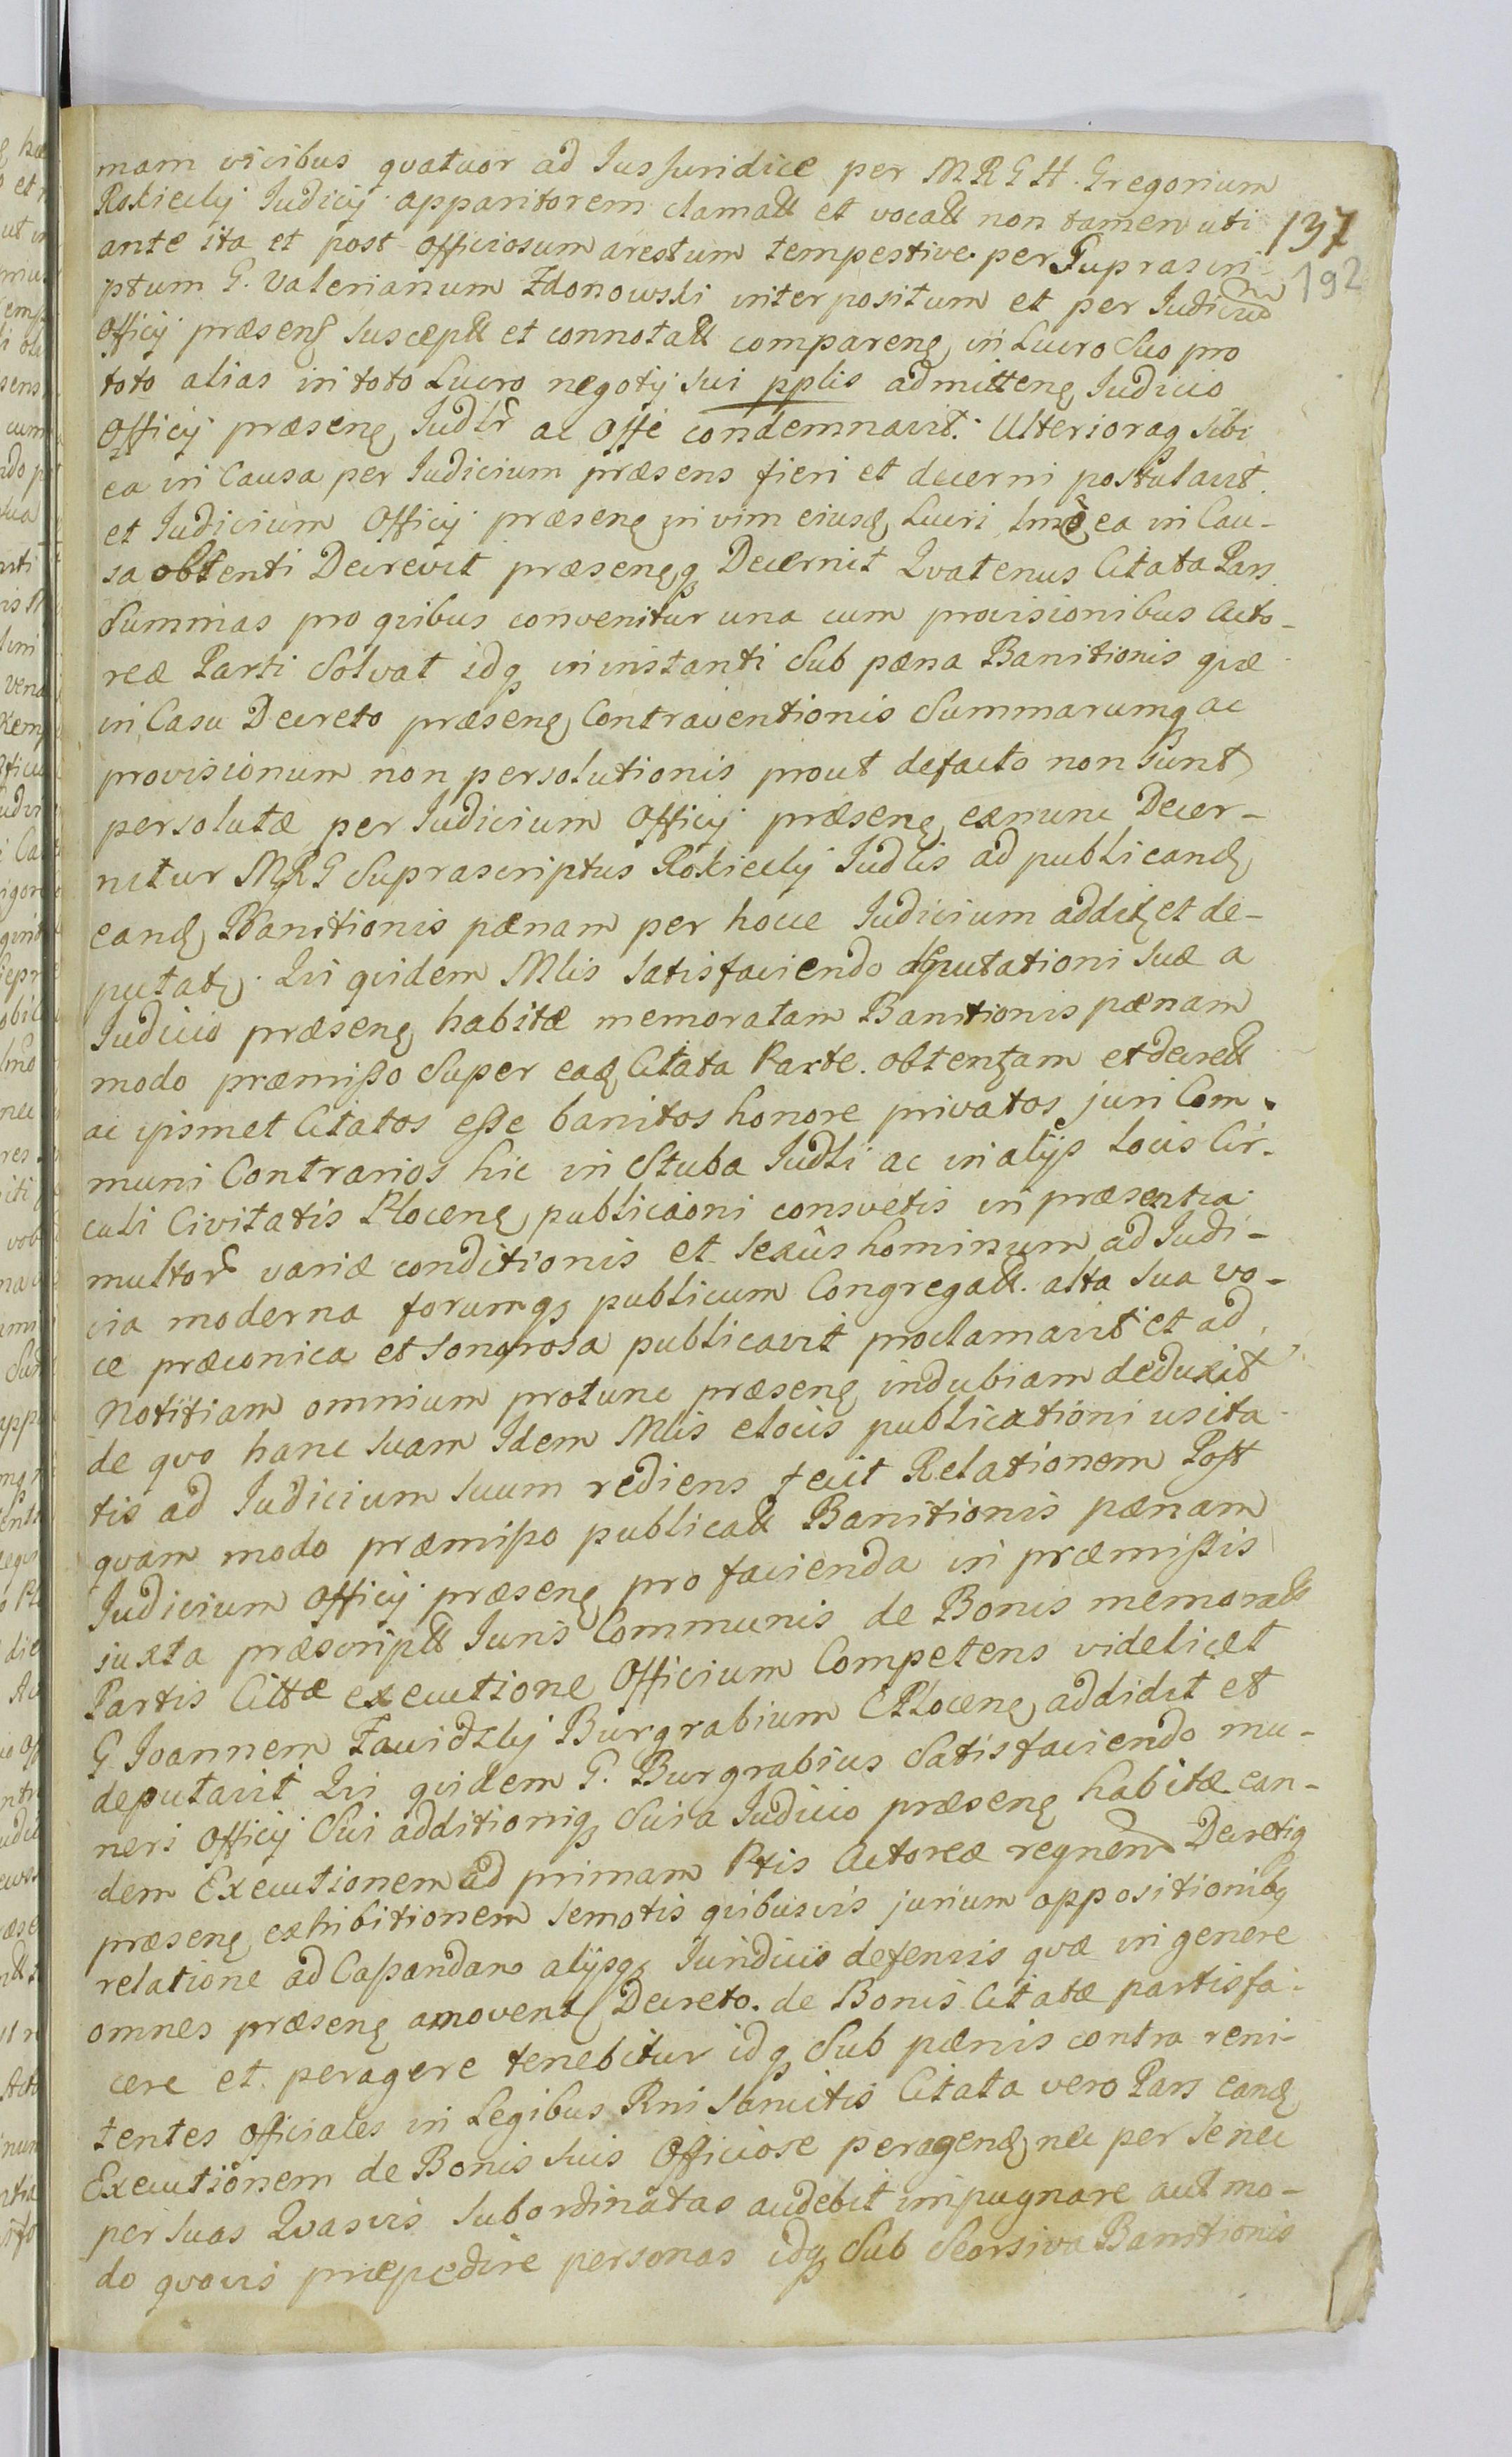 mam vicibus qvatuor ad Jus Juridice per M R G H. Gregorium
Rokicclij Judicij apparitorem clamatt et vocatt non tamen uti
137
ante ita et post officiosum arestum tempestive per Suprascri-
192
ptum G. Valerianum Zdonowski interpositum et per Judicium
Officij præsens Susceptt et connotatt comparens, in Lucro Suo pro
toto alias in toto Lucro negotij Sui pplis admittens, Judicio
Officij præsens, Judlr ac Offe condemnavit. Ulterioraq, Sibi
ea in Causa per Judicium præsens fieri et decerni postulavit.
et Judicium Officij præsens, in vim eiusd, Lucri, ea in Cau-
sa obtenti Decrevit præsensq, Decernit Qvatenus Citata Pars
Summas pro qvibus convenitur una cum provisionibus Acto-
reæ Parti Solvat idq, in instanti Sub pæna Banitionis qvæ
in Casu Decreto præsens, Contraventionis Summarumq, ac
provisionum non persolutionis prout defacto non Sunt
persolutæ per Judicium Officij præsens, exnunc Decer-
nitur M R G Suprascriptus Rokicclij Judlis ad publicand,
eand, Banitionis pænam per hocce Judicium addit, et de-
putat,. Qvi qvidem Mlis satisfaciendo deputationi Suæ a
Judicio præsens, habitæ memoratam Banitionis pænam
modo præmisso Super ead, Citata Parte. obtentam et decrett
ac ipsmet Citatos esse banitos honore privatos juri Com-
muni Contrarios hic in Stuba Judli ac in alijs Locis Cir-
culi Civitatis Plocens, publicaoni consvetis in præsentia
multor variæ conditionis et sexûs hominum ad Judi-
cia moderna forumq, publicum Congregatt. alta Sua vo-
ce præconica et sonorosa publicavit proclamavit et ad
Notitiam omnium protunc præsens, indubiam deduxit
de qvo hanc suam Idem Mlis elocis publicationi usita-
tis ad Judicium suum rediens fecit Relationem Post
qvam modo præmisso publicatt Banitionis pænam
Judicium Officij præsens, pro facienda in præmissis
juxta præscriptt Juris Communis de Bonis memoratt
Partis Cittæ executione Officium Competens videlicet
G. Joannem Burgrabium C Plocens, addidit et
deputavit Qvi qvidem G. Burgrabius Satisfaciendo mu-
neri Officij Sui additioniq, Sui a Judicio præsens, habitæ ean-
dem Executionem ad primam Ptis Actoreæ reqnem Decretiq
præsens, exhibitionem semotis qvibusvis jurium oppositionibq
relatione ad Cassandam alijsq, Juridicis defensis qvæ in genere
omnes præsens, amovent, Decreto. de Bonis Citatæ partis fa-
cere et peragere tenebitur idq, Sub pænis contra reni-
tentes Officiales in Legibus Rni sancitis Citata vero Pars eand,
Executionem de Bonis suis Officiose peragend, nec per Se nec
per suas Qvasvis Subordinatas audebit impugnare aut mo-
do qvovis præpedire personas idq, Sub Seorsiva Banitionis